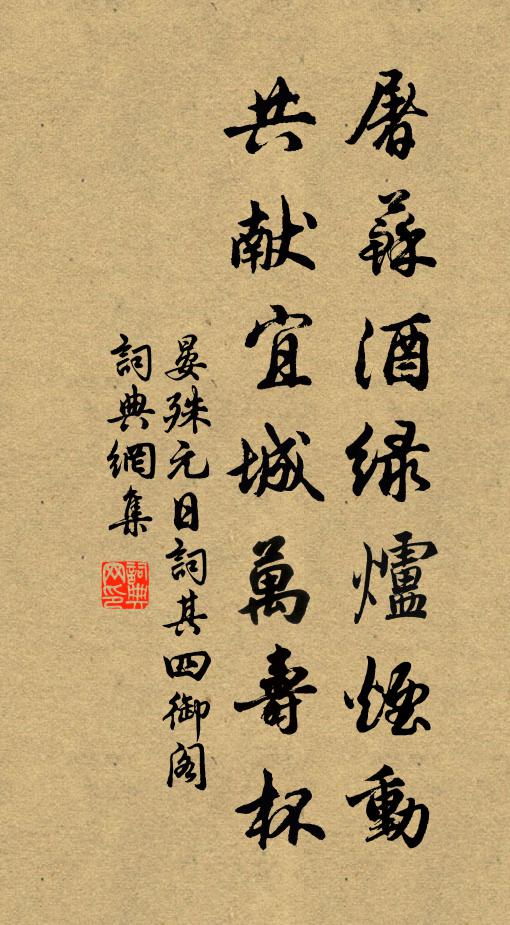 屠蘇酒绿爐煙動
共献宜城萬壽杯
晏殊元日詞其四御阁
詞典網集
詞典网印